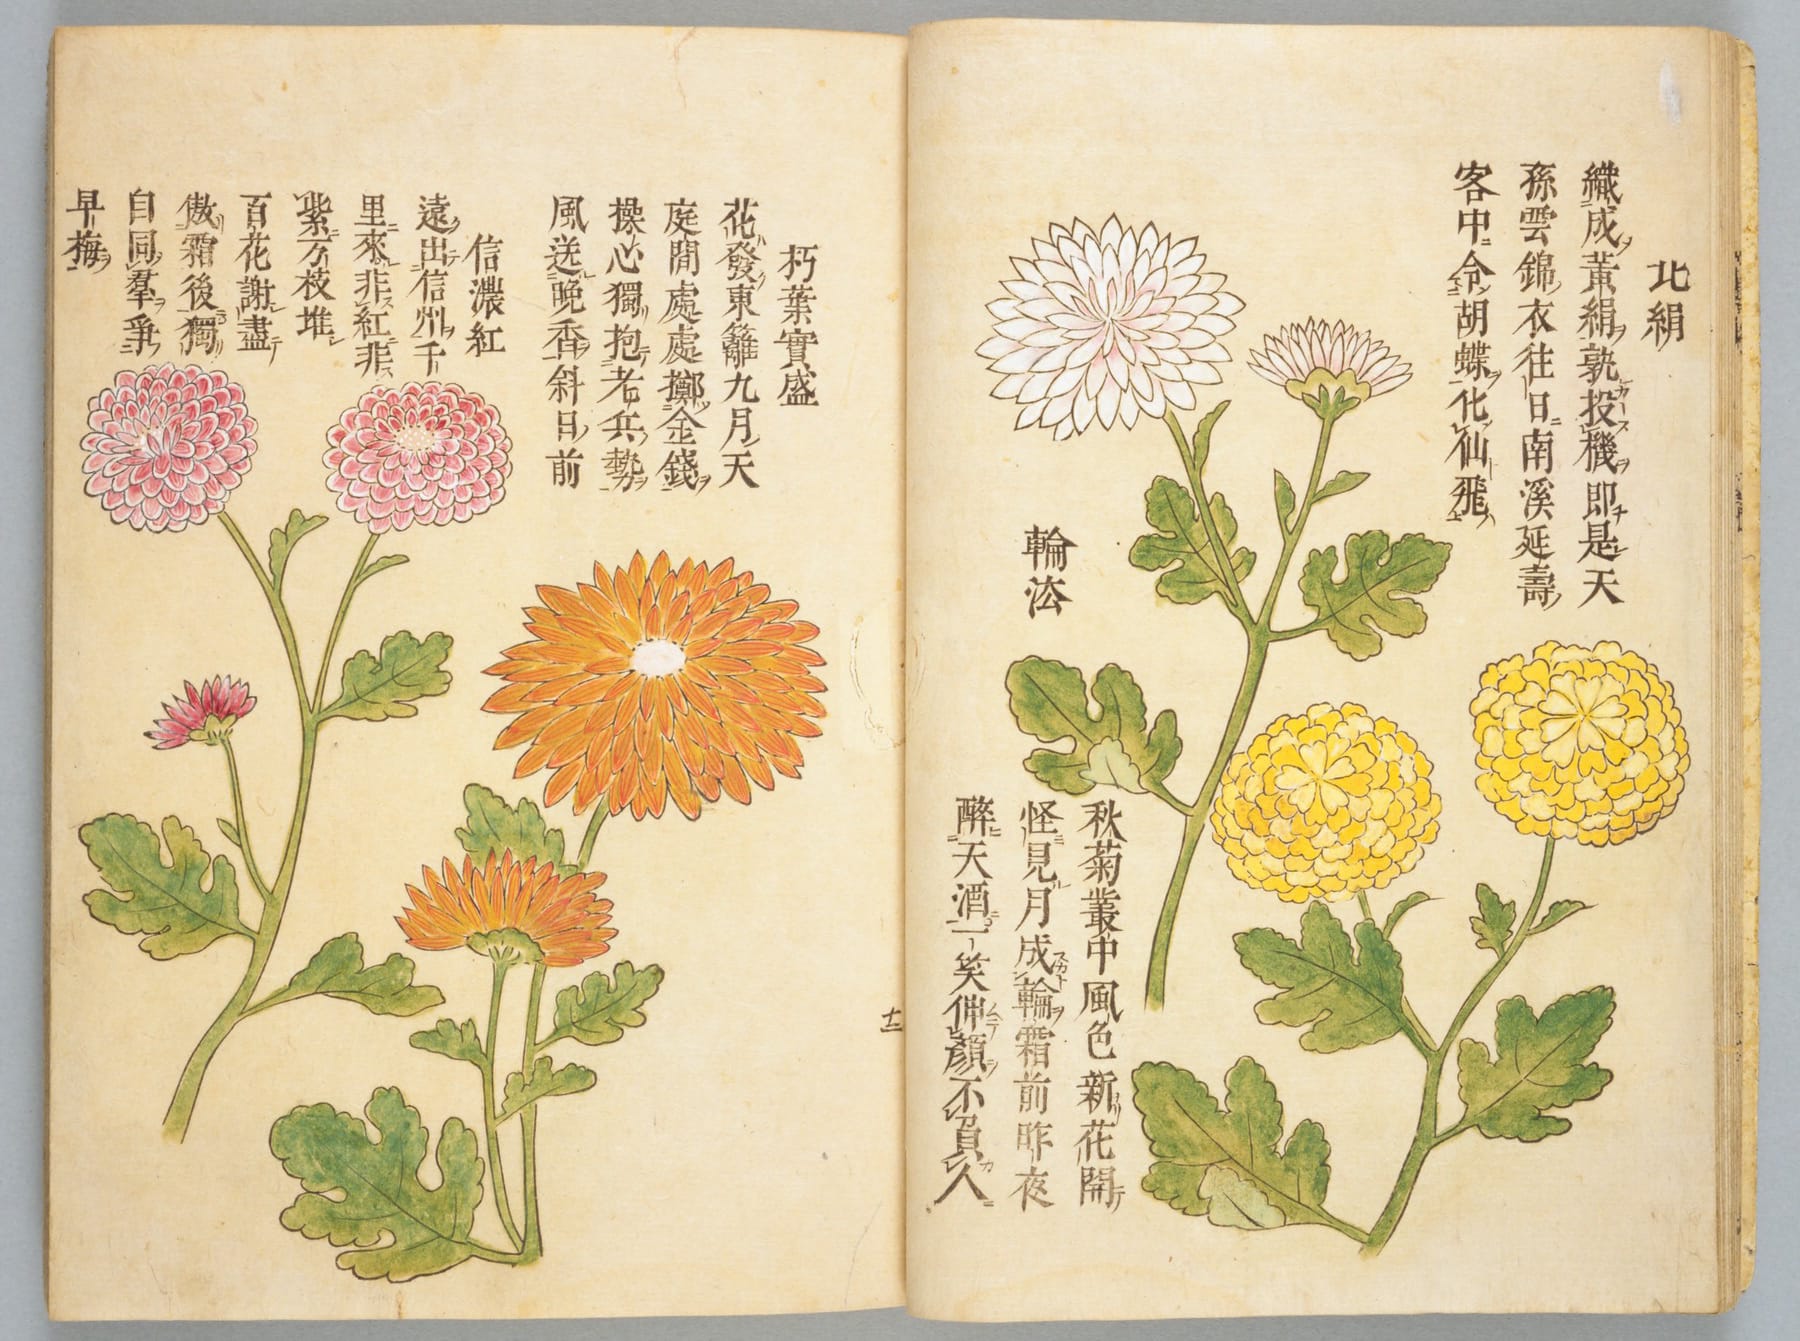 北絹
織成黄絹孰投機即是天
孫雲錦衣往日南溪延壽
客中令胡蝶化仙飛
輪法
秋菊叢中風色新花開
怪見月成輪霜前昨夜
醉天酒一笑佣顏不負人
十二
朽葉實盛
花發東籬九月天
庭間處處擲金錢
操心獨抱老兵勢
風送晚香斜日前
信濃紅
遠出信州千
里來非紅非
紫万枝堆
百花謝盡
傲霜後獨
自同羣爭
早梅